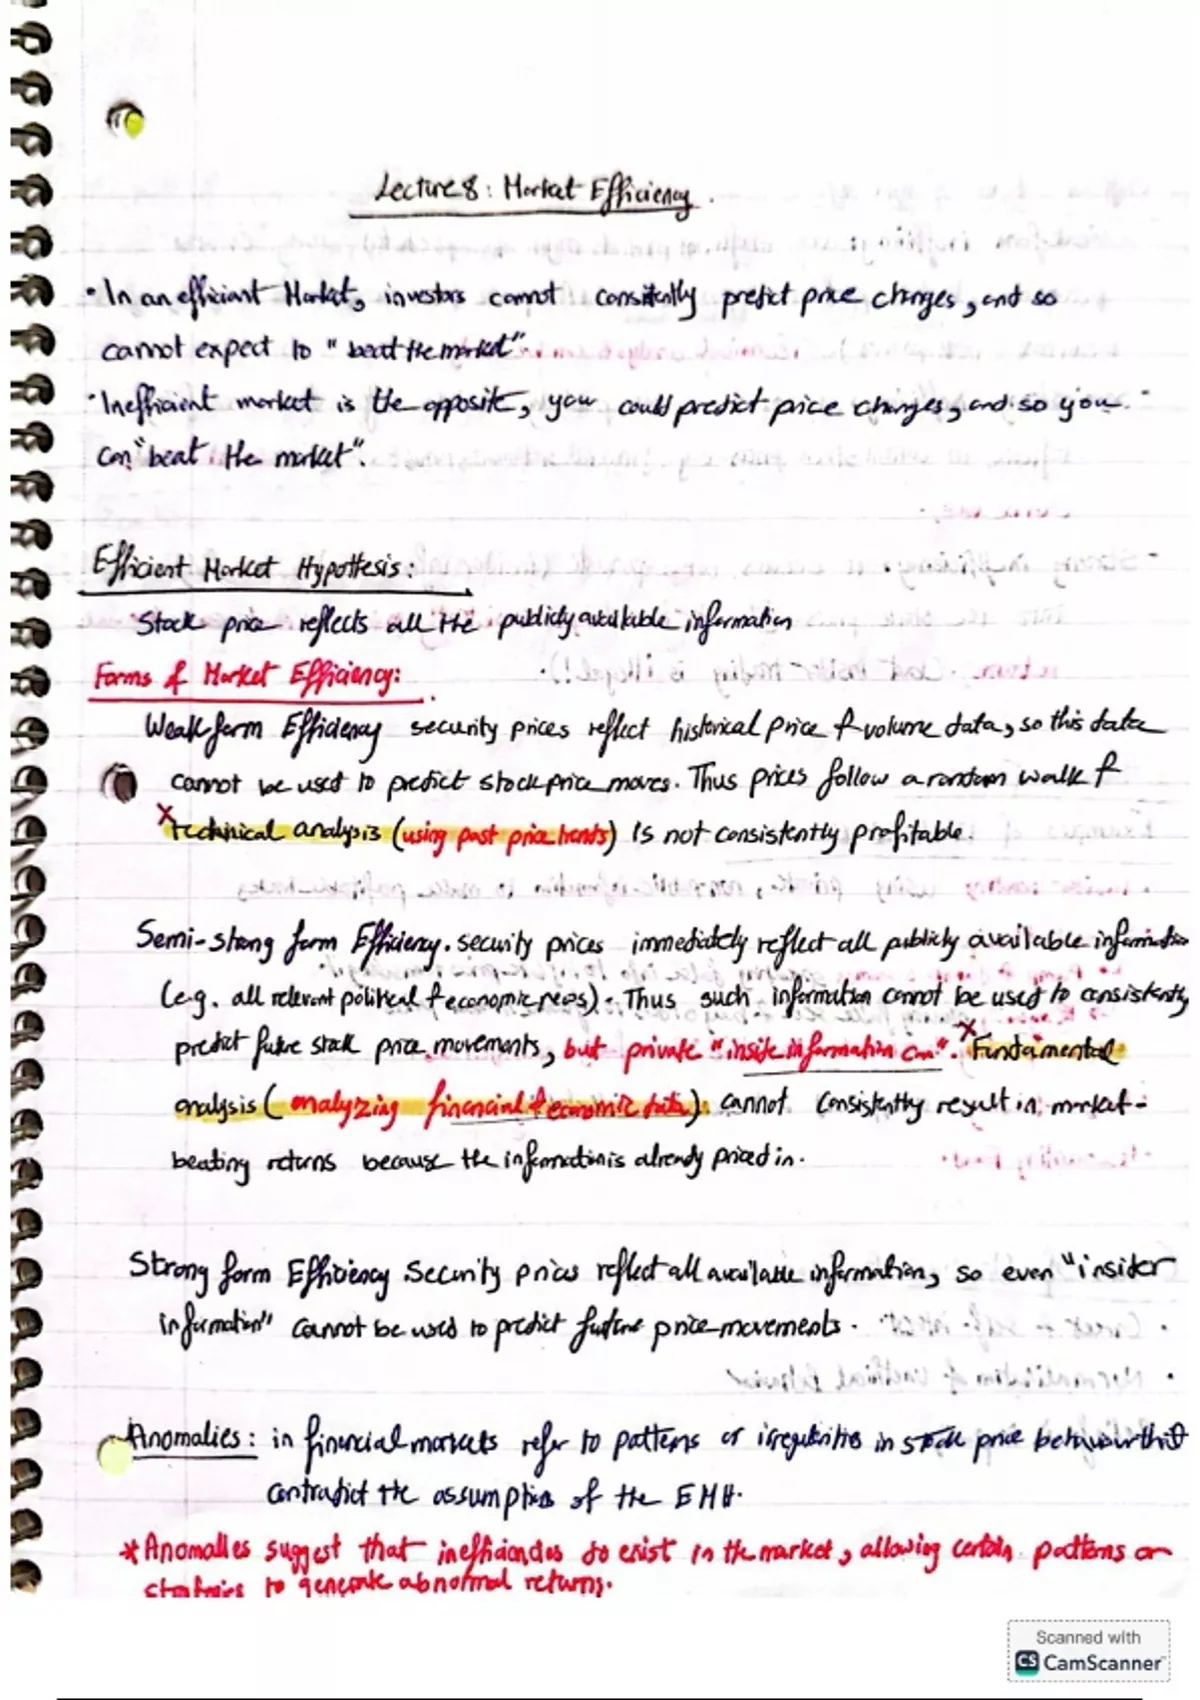 Lecture 8: Market Efficiency.
• In an efficient Market, investors cannot consistently predict price changes, and so
cannot expect to "beat the market".
• Inefficient market is the opposite, you could predict price changes, and so you
can "beat the market".
Efficient Market Hypothesis:
Stock price reflects all the publicly available information
Forms of Market Efficiency:
Weak form Efficiency security prices reflect historical price & volume data, so this data
cannot be used to predict stock price moves. Thus prices follow a random walk &
x technical analysis (using past price trends) is not consistently profitable.
Semi-strong form Efficiency. security prices immediately reflect all publicly available information
(e.g. all relevant political & economic news). Thus such information cannot be used to consistently
predict future stock price movements, but private "inside information can". x Fundamental
analysis (analyzing financial & economic data) cannot consistently result in market-
beating returns because the information is already priced in.
Strong form Efficiency Security prices reflect all available information, so even "insider
information" cannot be used to predict future price movements.
Anomalies: in financial markets refer to patterns or irregularities in stock price behaviour that
contradict the assumptions of the EMH.
* Anomalies suggest that inefficiencies do exist in the market, allowing certain patterns or
strategies to generate abnormal returns.
Scanned with
CS CamScanner